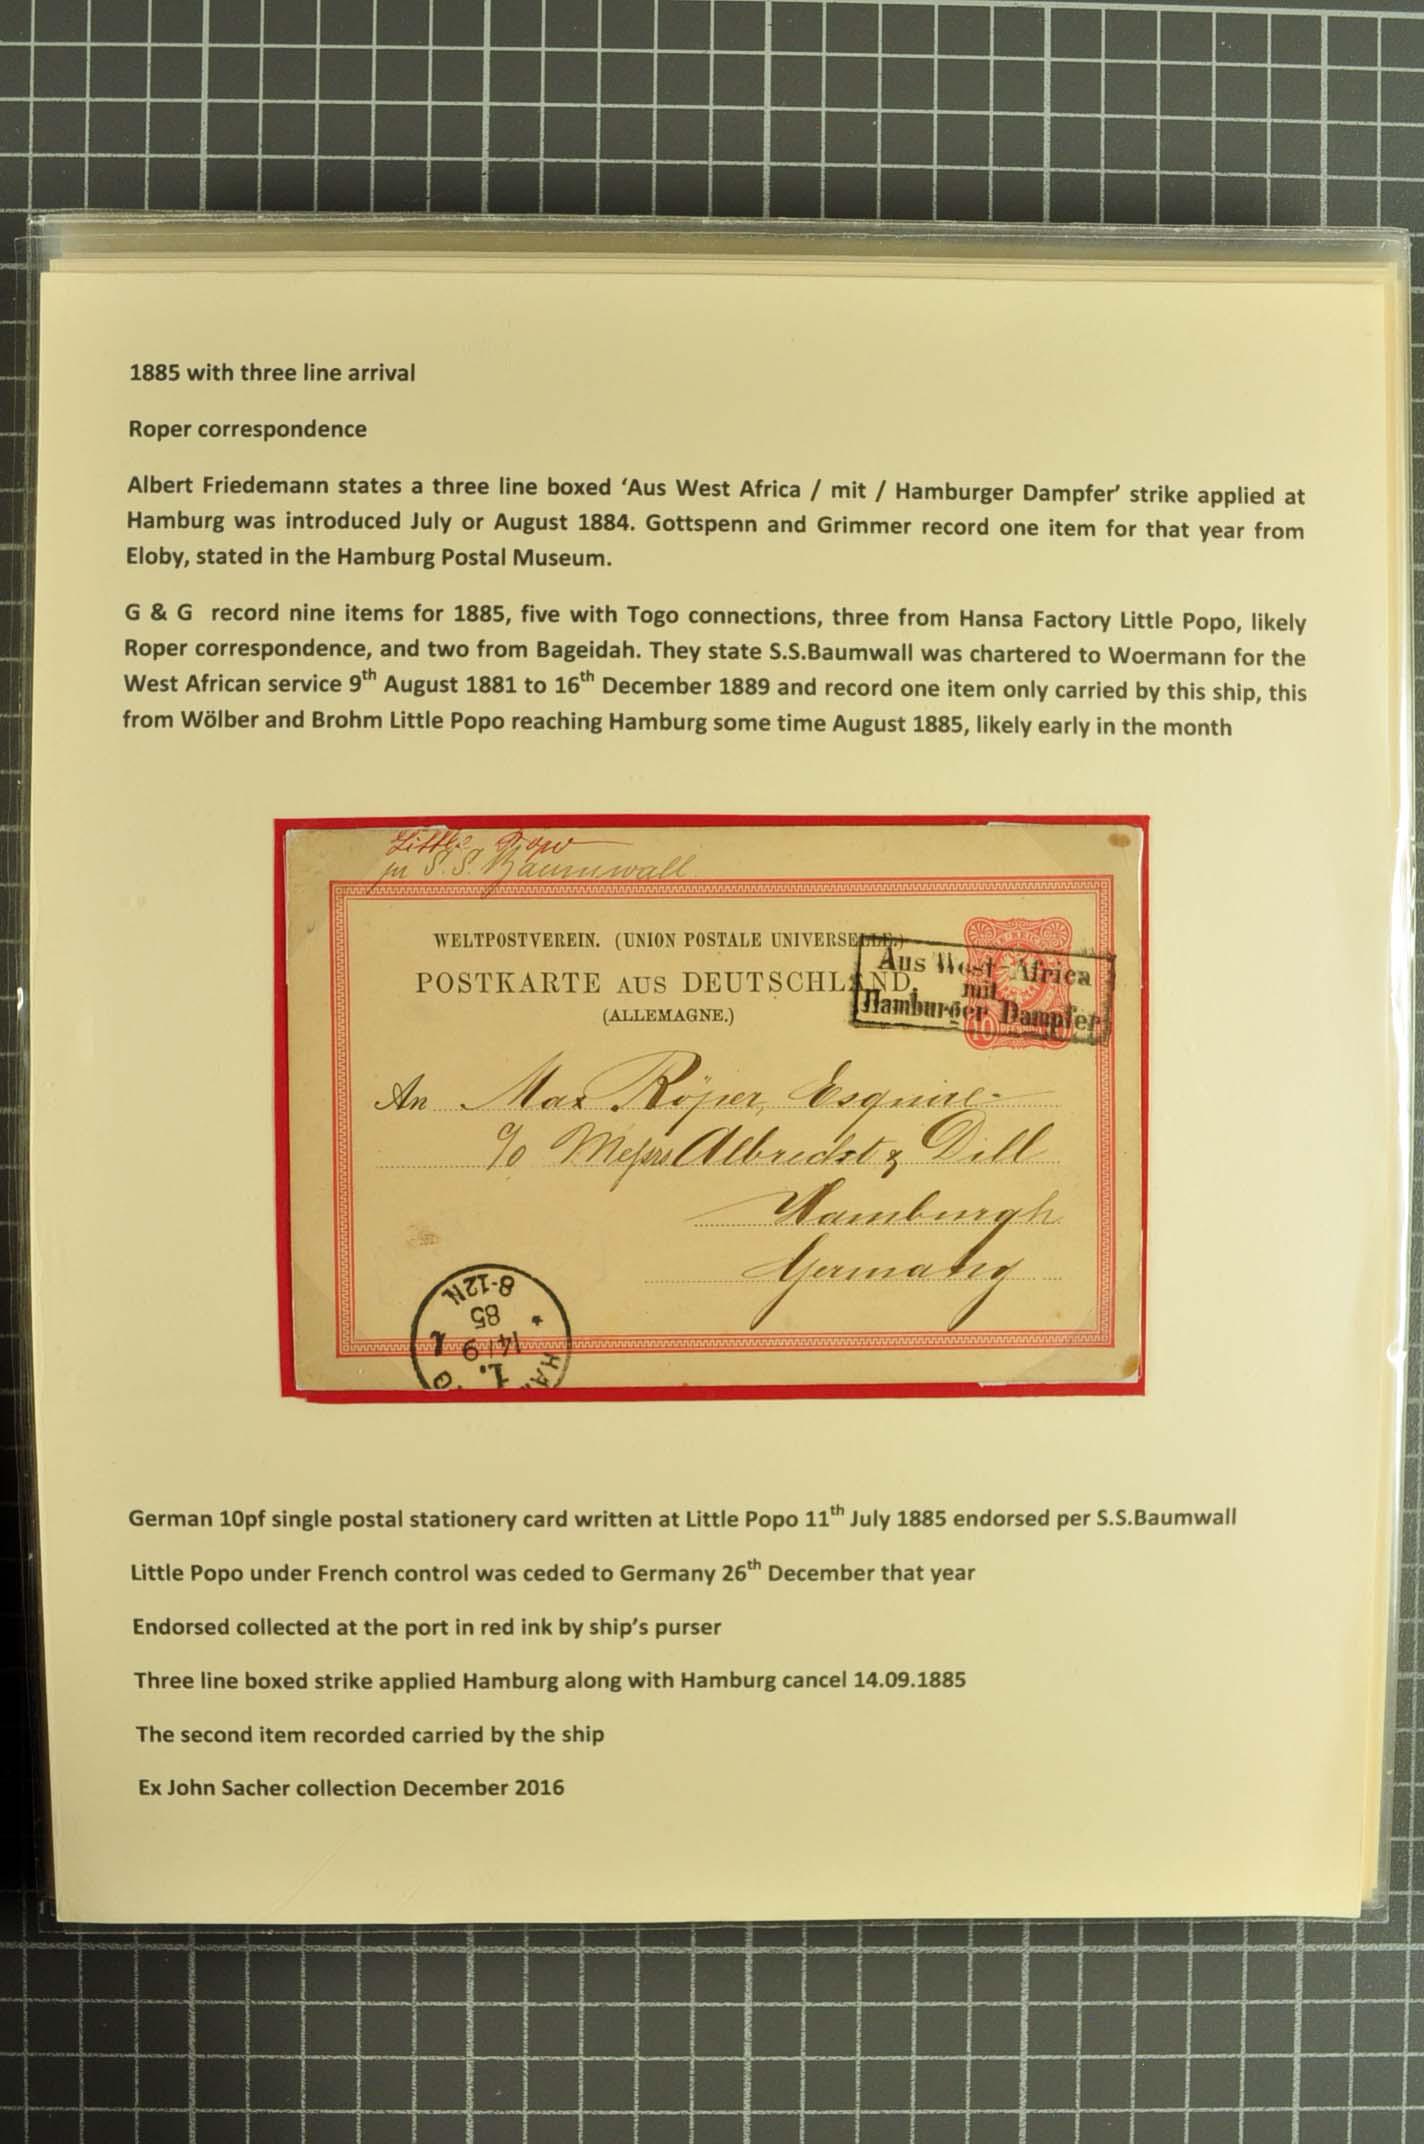 1885 with three line arrival
Roper correspondence
Albert Friedemann states a three line boxed ‘Aus West Africa / mit / Hamburger Dampfer’ strike applied at
Hamburg was introduced July or August 1884. Gottspenn and Grimmer record one item for that year from
Eloby, stated in the Hamburg Postal Museum.
G & G record nine items for 1885, five with Togo connections, three from Hansa Factory Little Popo, likely
Roper correspondence, and two from Bageidah. They state S.S.Baumwall was chartered to Woermann for the
West African service 9th August 1881 to 16th December 1889 and record one item only carried by this ship, this
from Wölber and Brohm Little Popo reaching Hamburg some time August 1885, likely early in the month
Little Popo
pr S.S. Baumwall
WELTPOSTVEREIN. (UNION POSTALE UNIVERSELLE.)
POSTKARTE AUS DEUTSCHLAND.
(ALLEMAGNE.)
Aus West-Africa
mit
Hamburger Dampfer
10
An Max Röper, Esquire
c/o Messrs Albrecht & Dill
Hamburgh
Germany
8-12N
85
14/9
1.
German 10pf single postal stationery card written at Little Popo 11th July 1885 endorsed per S.S.Baumwall
Little Popo under French control was ceded to Germany 26th December that year
Endorsed collected at the port in red ink by ship’s purser
Three line boxed strike applied Hamburg along with Hamburg cancel 14.09.1885
The second item recorded carried by the ship
Ex John Sacher collection December 2016